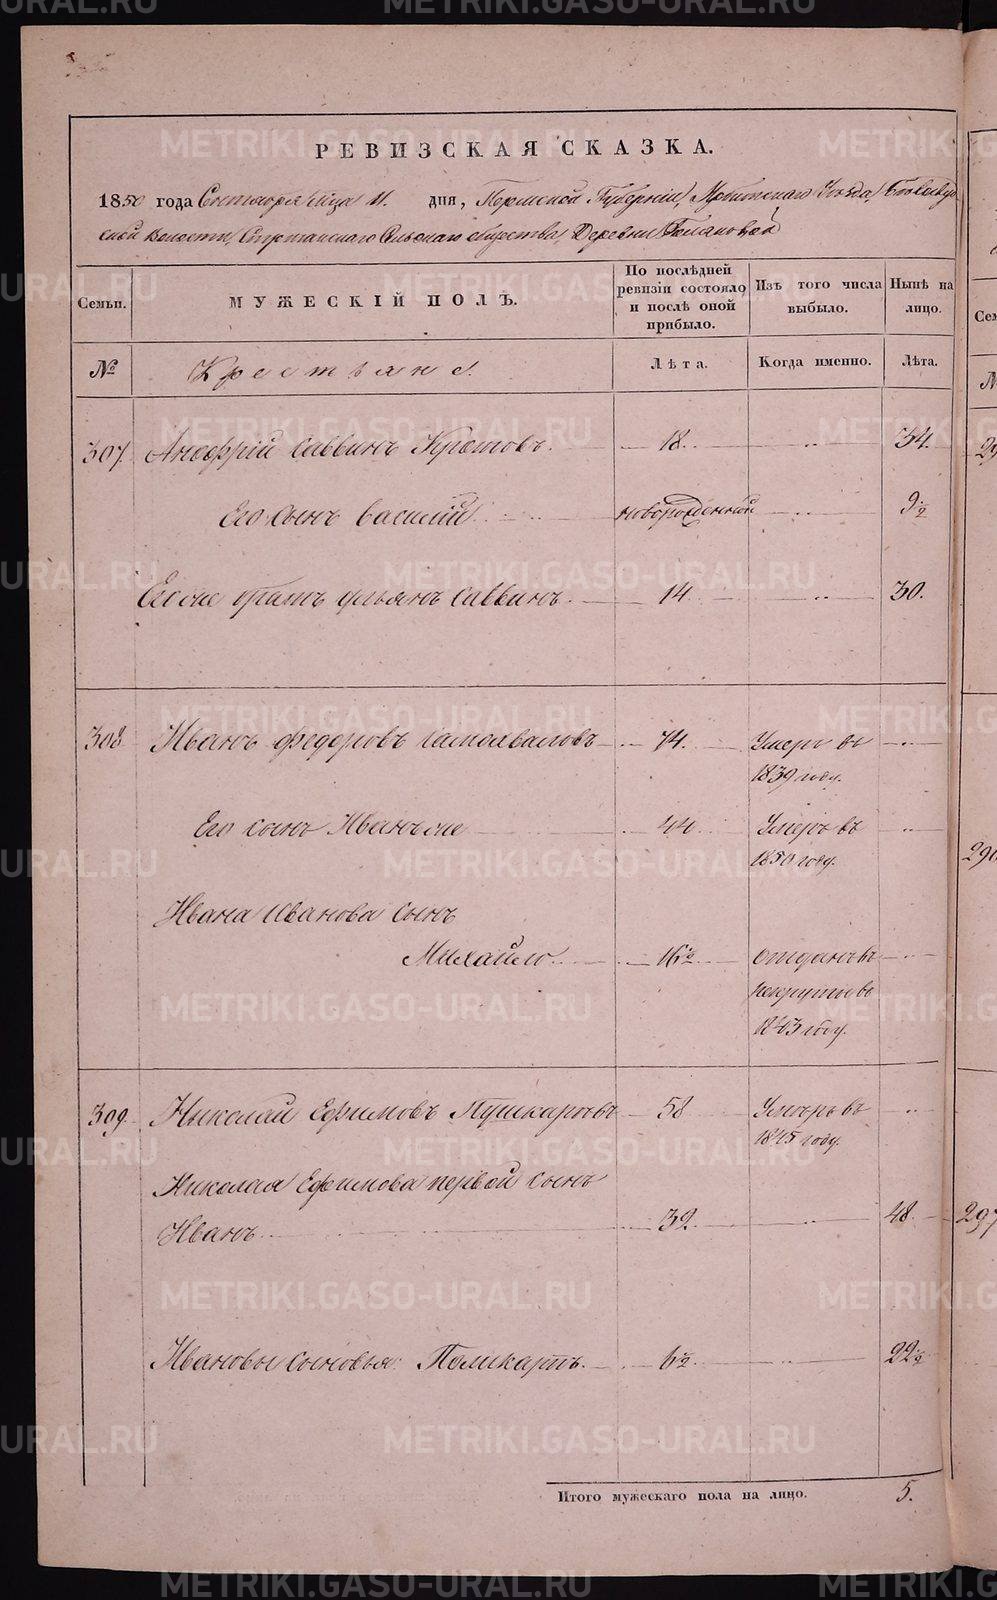 РЕВИЗСКАЯ СКАЗКА.
1850 года Сентября м‑ца 11. дня, Пермской Губерніи, Ирбитскаго Уѣзда,
ской Волости, Сельскаго общества, Деревни
Семьи.
МУЖЕСКІЙ ПОЛЪ.
По послѣдней ревизіи состояло и послѣ оной прибыло.
Изъ того числа выбыло.
Нынѣ на лицо.
№
Крестьяне.
Лѣта.
Когда именно.
Лѣта.
307. Саввинъ 18. 34.
Его сынъ Василій новорожденный 9½
Его же братъ Ульянъ Саввинъ. 14 30.
308 Иванъ Федоровъ Самохваловъ 74. Умеръ въ
1839 году.
Его сынъ Иванъ же 44 Умеръ въ
1850 году.
Ивана Иванова сынъ
Михайло 16½ отданъ въ
рекруты въ
1843 году.
309. Николай Ефимовъ Пушкаревъ 58 Умеръ въ
1845 году.
Николая Ефимова первой сынъ
Иванъ 32 48
Ивановы сыновья: Поликарпъ. 6½ 22½
Итого мужескаго пола на лицо. 5.
29
296
297
METRIKI.GASO-URAL.RU